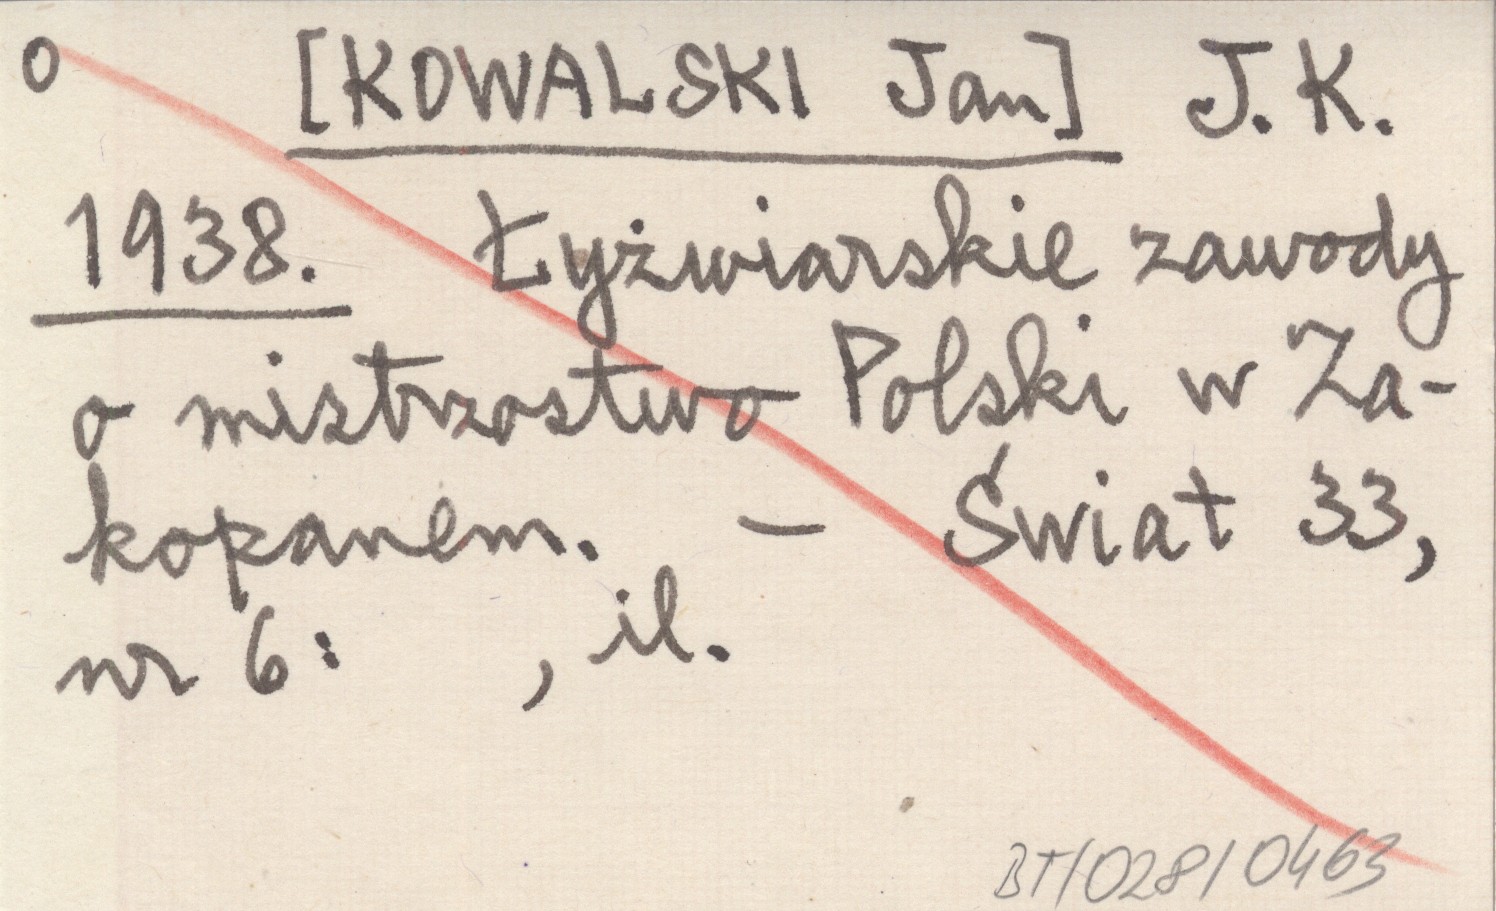 o [KOWALSKI Jan] J. K.
1938. Łyżwiarskie zawody
o mistrzostwo Polski w Za-
kopanem. – Świat 33,
nr 6: , il.
BT/028/0463